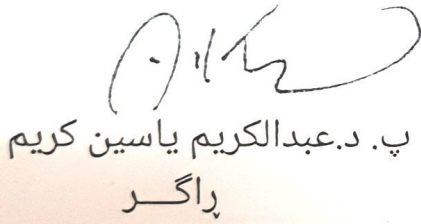 پ. د.عبدالكريم ياسين كريم
ڕاگـــر